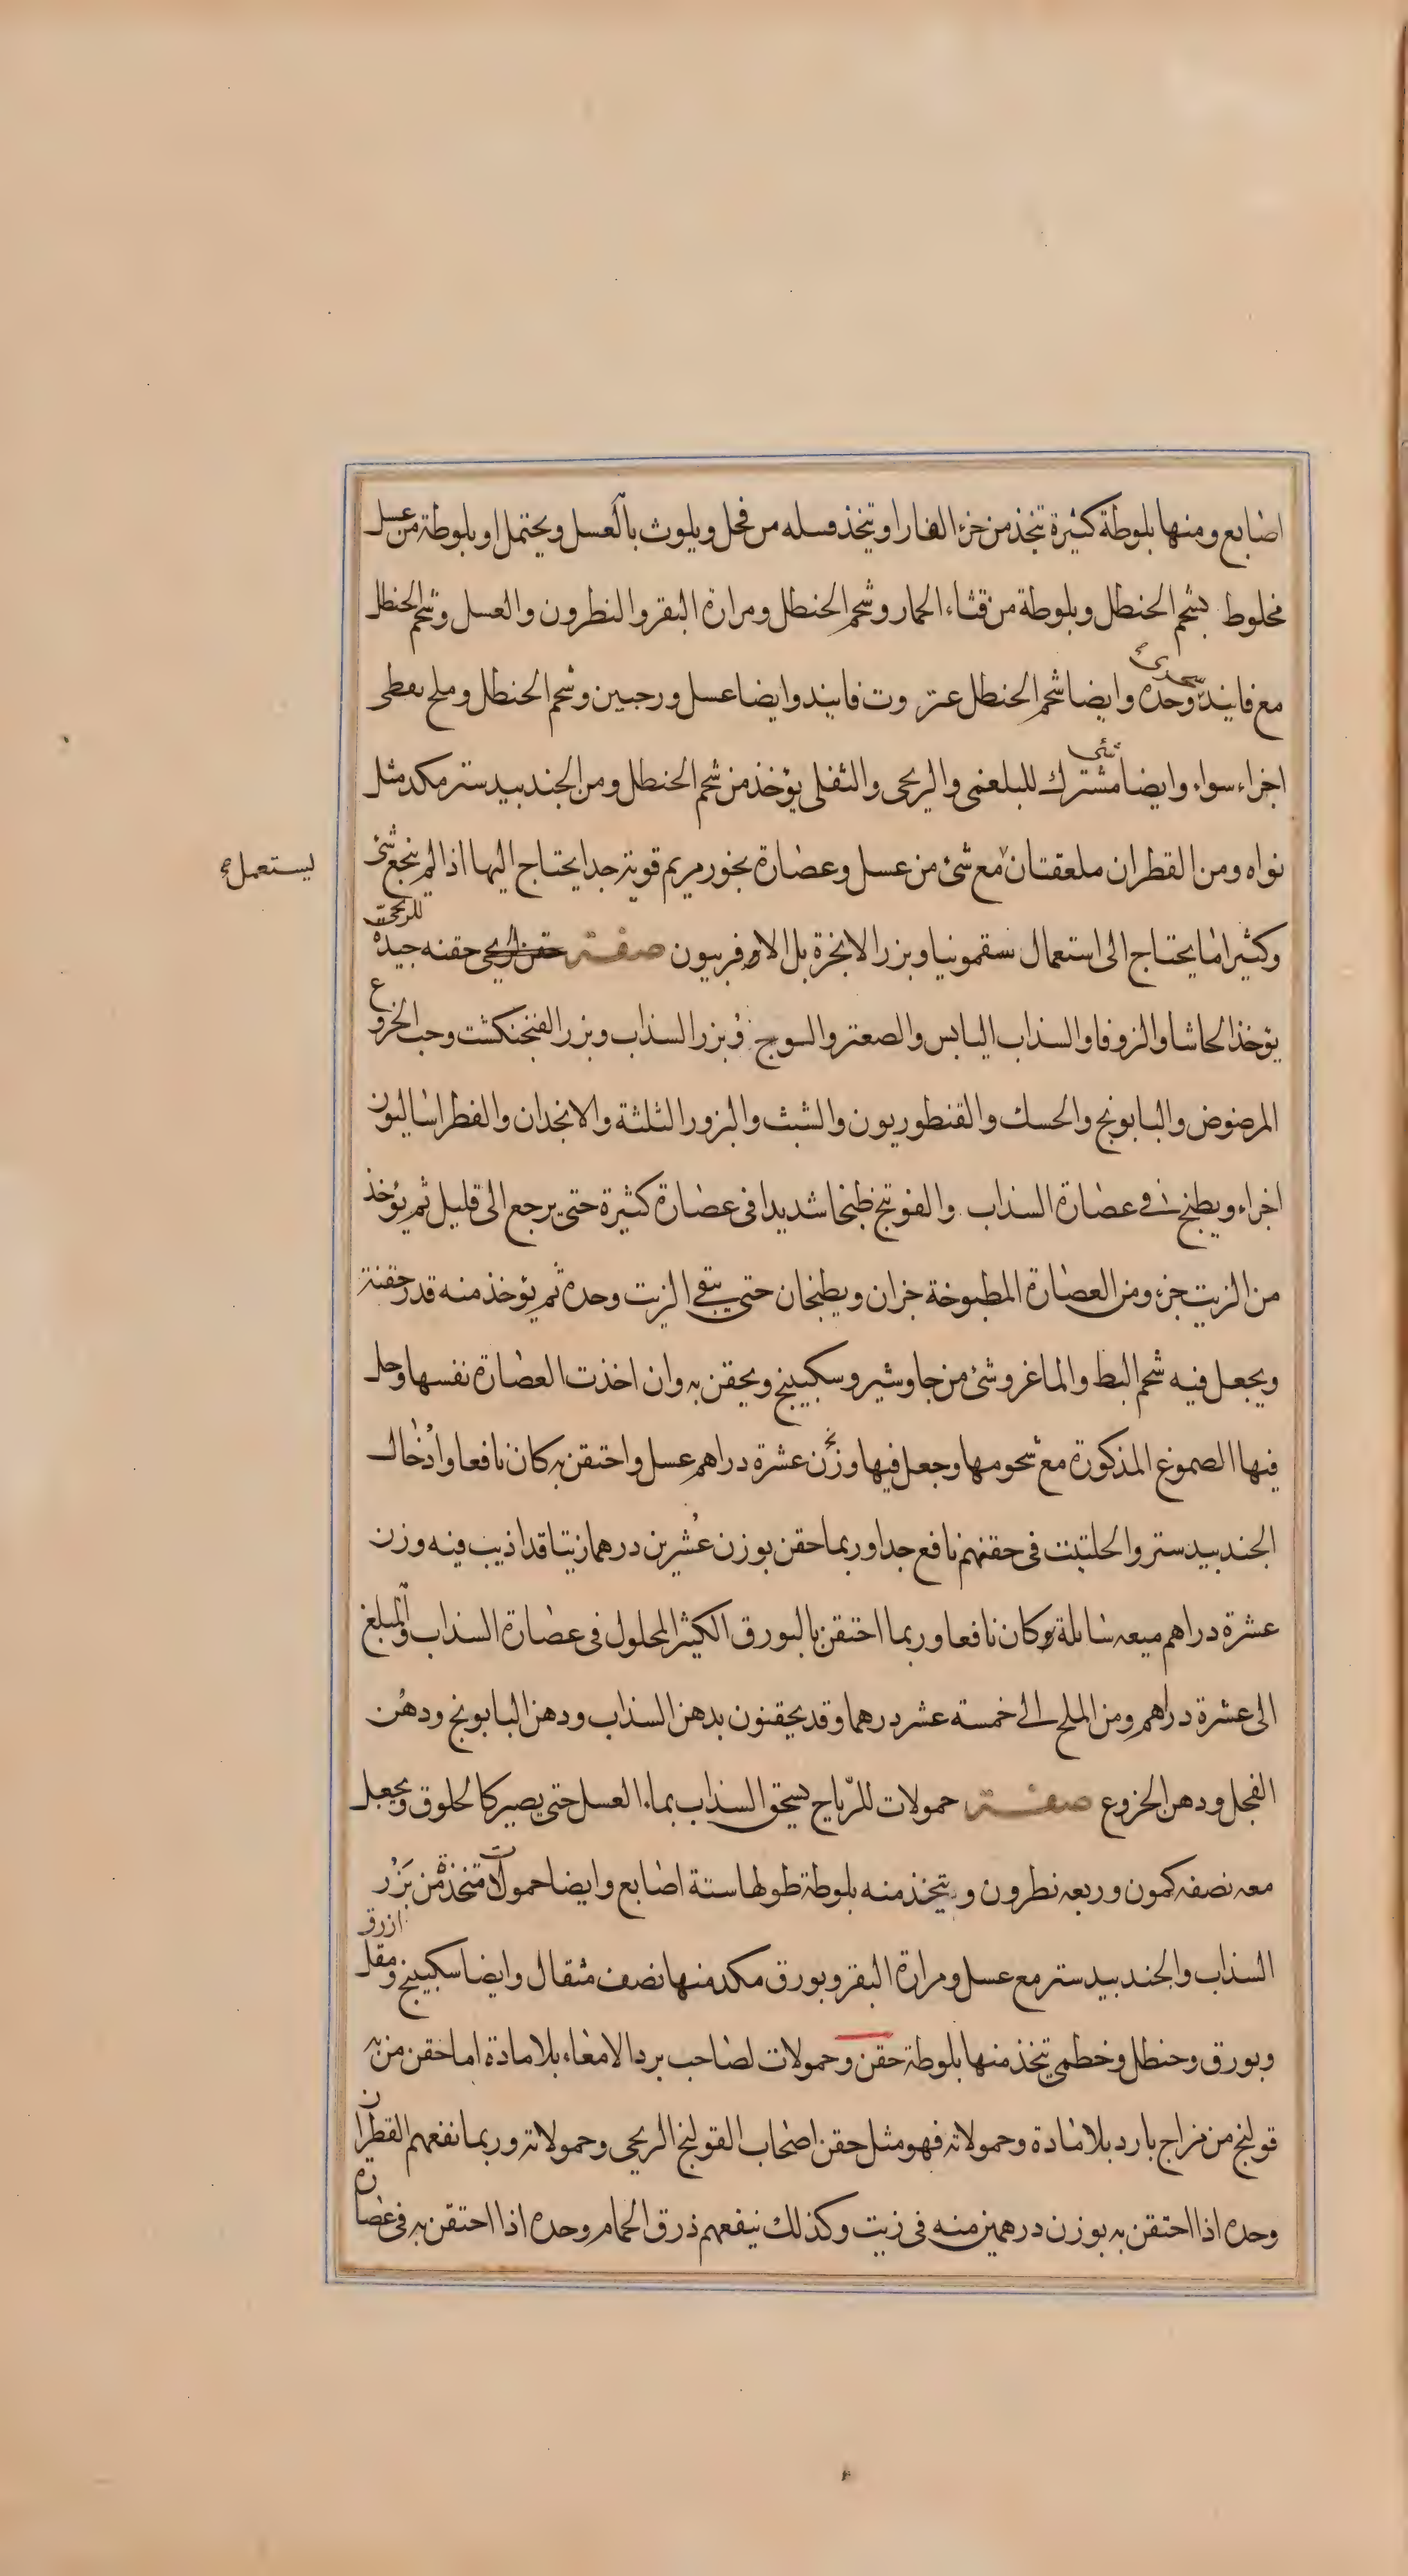 اصابع ومنها بلوطة كثيرة تتخذ من خرء الفار او يتخذ فسله من فجل ويلوث بالعسل ويحتمل او بلوطة من عسل
مخلوط بشحم الحنطل وبلوطة من قثاء الحمار وشحم الحنطل ومرارة البقر والنطرون والعسل وشحم الحنطل
مع فانيد سجزى وحده وايضا شحم الحنطل عنزروت فانيد وايضا عسل ورجبين وشحم الحنطل وملح نفطى
اجزاء سواء وايضا شئى مشترك للبلغمى والريحى والثفلى يؤخذ من شحم الحنطل ومن الجندبيدستر مكد مثل
نواه ومن القطران ملعقتان مع شئ من عسل وعصارة بخور مريم قوية جدا يحتاج اليها اذا لم ينجع شئ
ليستعمل
وكثيرا ما يحتاج الى استعمال سقمونيا وبزر الانجزة بل الافربيون صفة حقن الريحى حقنه جيدة للريحى
يؤخذ الحاشا والزوفا والسذاب اليابس والصعتر والسوج وبزر السذاب وبزر الفنجنكشت وحب الخروع
المرضوض والبابونج والحسك والقنطوريون والشبث والبزور الثلثة والانجدان والفطراساليون
اجزاء ويطبخ في عصارة السذاب والفوتنج طبخا شديدا في عصارة كثيرة حتى يرجع الى قليل ثم يؤخذ
من الزيت جزء ومن العصارة المطبوخة جزان ويطبخان حتى يبقى الزيت وحده ثم يؤخذ منه قدر حقنة
ويجعل فيه شحم البط والماغر وشئ من جاوشير وسكبينج ويحقن به وان اخذت العصارة نفسها وحل
فيها الصموغ المذكورة مع شحومها وجعل فيها وزن عشرة دراهم عسل واحتقن به كان نافعا وادخال
الجندبيدستر والحلتيت في حقنهم نافع جدا وربما حقن بوزن عشرين درهما زيتا قد اذيب فيه وزن
عشرة دراهم ميعه سائلة وكان نافعا وربما احتقن بالبورق الكثير المحلول في عصارة السذاب والمبلغ
الى عشرة دراهم ومن الملح الى خمسة عشر درهما وقد يحقنون بدهن السذاب ودهن البابونج ودهن
الفجل ودهن الخروع صفة حمولات للرياح يسحق السذاب بماء العسل حتى يصير كالخلوق ويجعل
معه نصفه كمون وربعه نطرون ويتخذ منه بلوطة طولها ستة اصابع وايضا حمولات متخذة من بزر
السذاب والجندبيدستر مع عسل ومرارة البقر وبورق مكد منها نصف مثقال وايضا سكبينج ومقل ازرق
وبورق وحنطل وخطمى يتخذ منها بلوطة حقن وحمولات لصاحب برد الامعاء بلا مادة اما حقن من به
قولنج من مزاج بارد بلا مادة وحمولاته فهو مثل حقن اصحاب القولنج الريحى وحمولاته وربما نفعهم القطران
وحده اذا احتقن به بوزن درهمين منه في زيت وكذلك ينفعهم ذرق الحمام وحده اذا احتقن به في عصارة